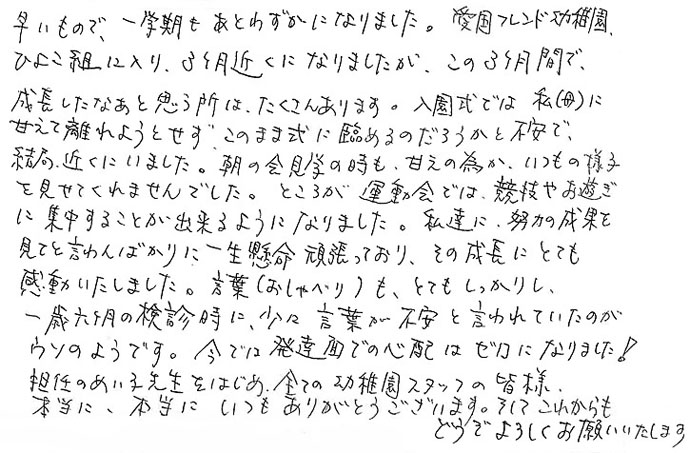 早いもので、一学期もあとわずかになりました。愛国フレンド幼稚園、
ひよこ組に入り、3ヶ月近くになりましたが、この3ヶ月間で、
成長したなあと思う所は、たくさんあります。入園式では私(母)に
甘えて離れようとせず、このまま式に臨めるのだろうかと不安で、
結局、近くにいました。朝の会見学の時も、甘えの為か、いつもの様子
を見せてくれませんでした。ところが運動会では、競技やお遊ぎ
に集中することが出来るようになりました。私達に、努力の成果を
見てと言わんばかりに一生懸命頑張っており、その成長にとても
感動いたしました。言葉(おしゃべり)も、とてもしっかりし、
一歳六ヶ月の検診時に、少々言葉が不安と言われていたのが
ウソのようです。今では発達面での心配はゼロになりました!
担任のめい子先生をはじめ、全ての幼稚園スタッフの皆様、
本当に、本当にいつもありがとうございます。そしてこれからも
どうぞよろしくお願いいたします